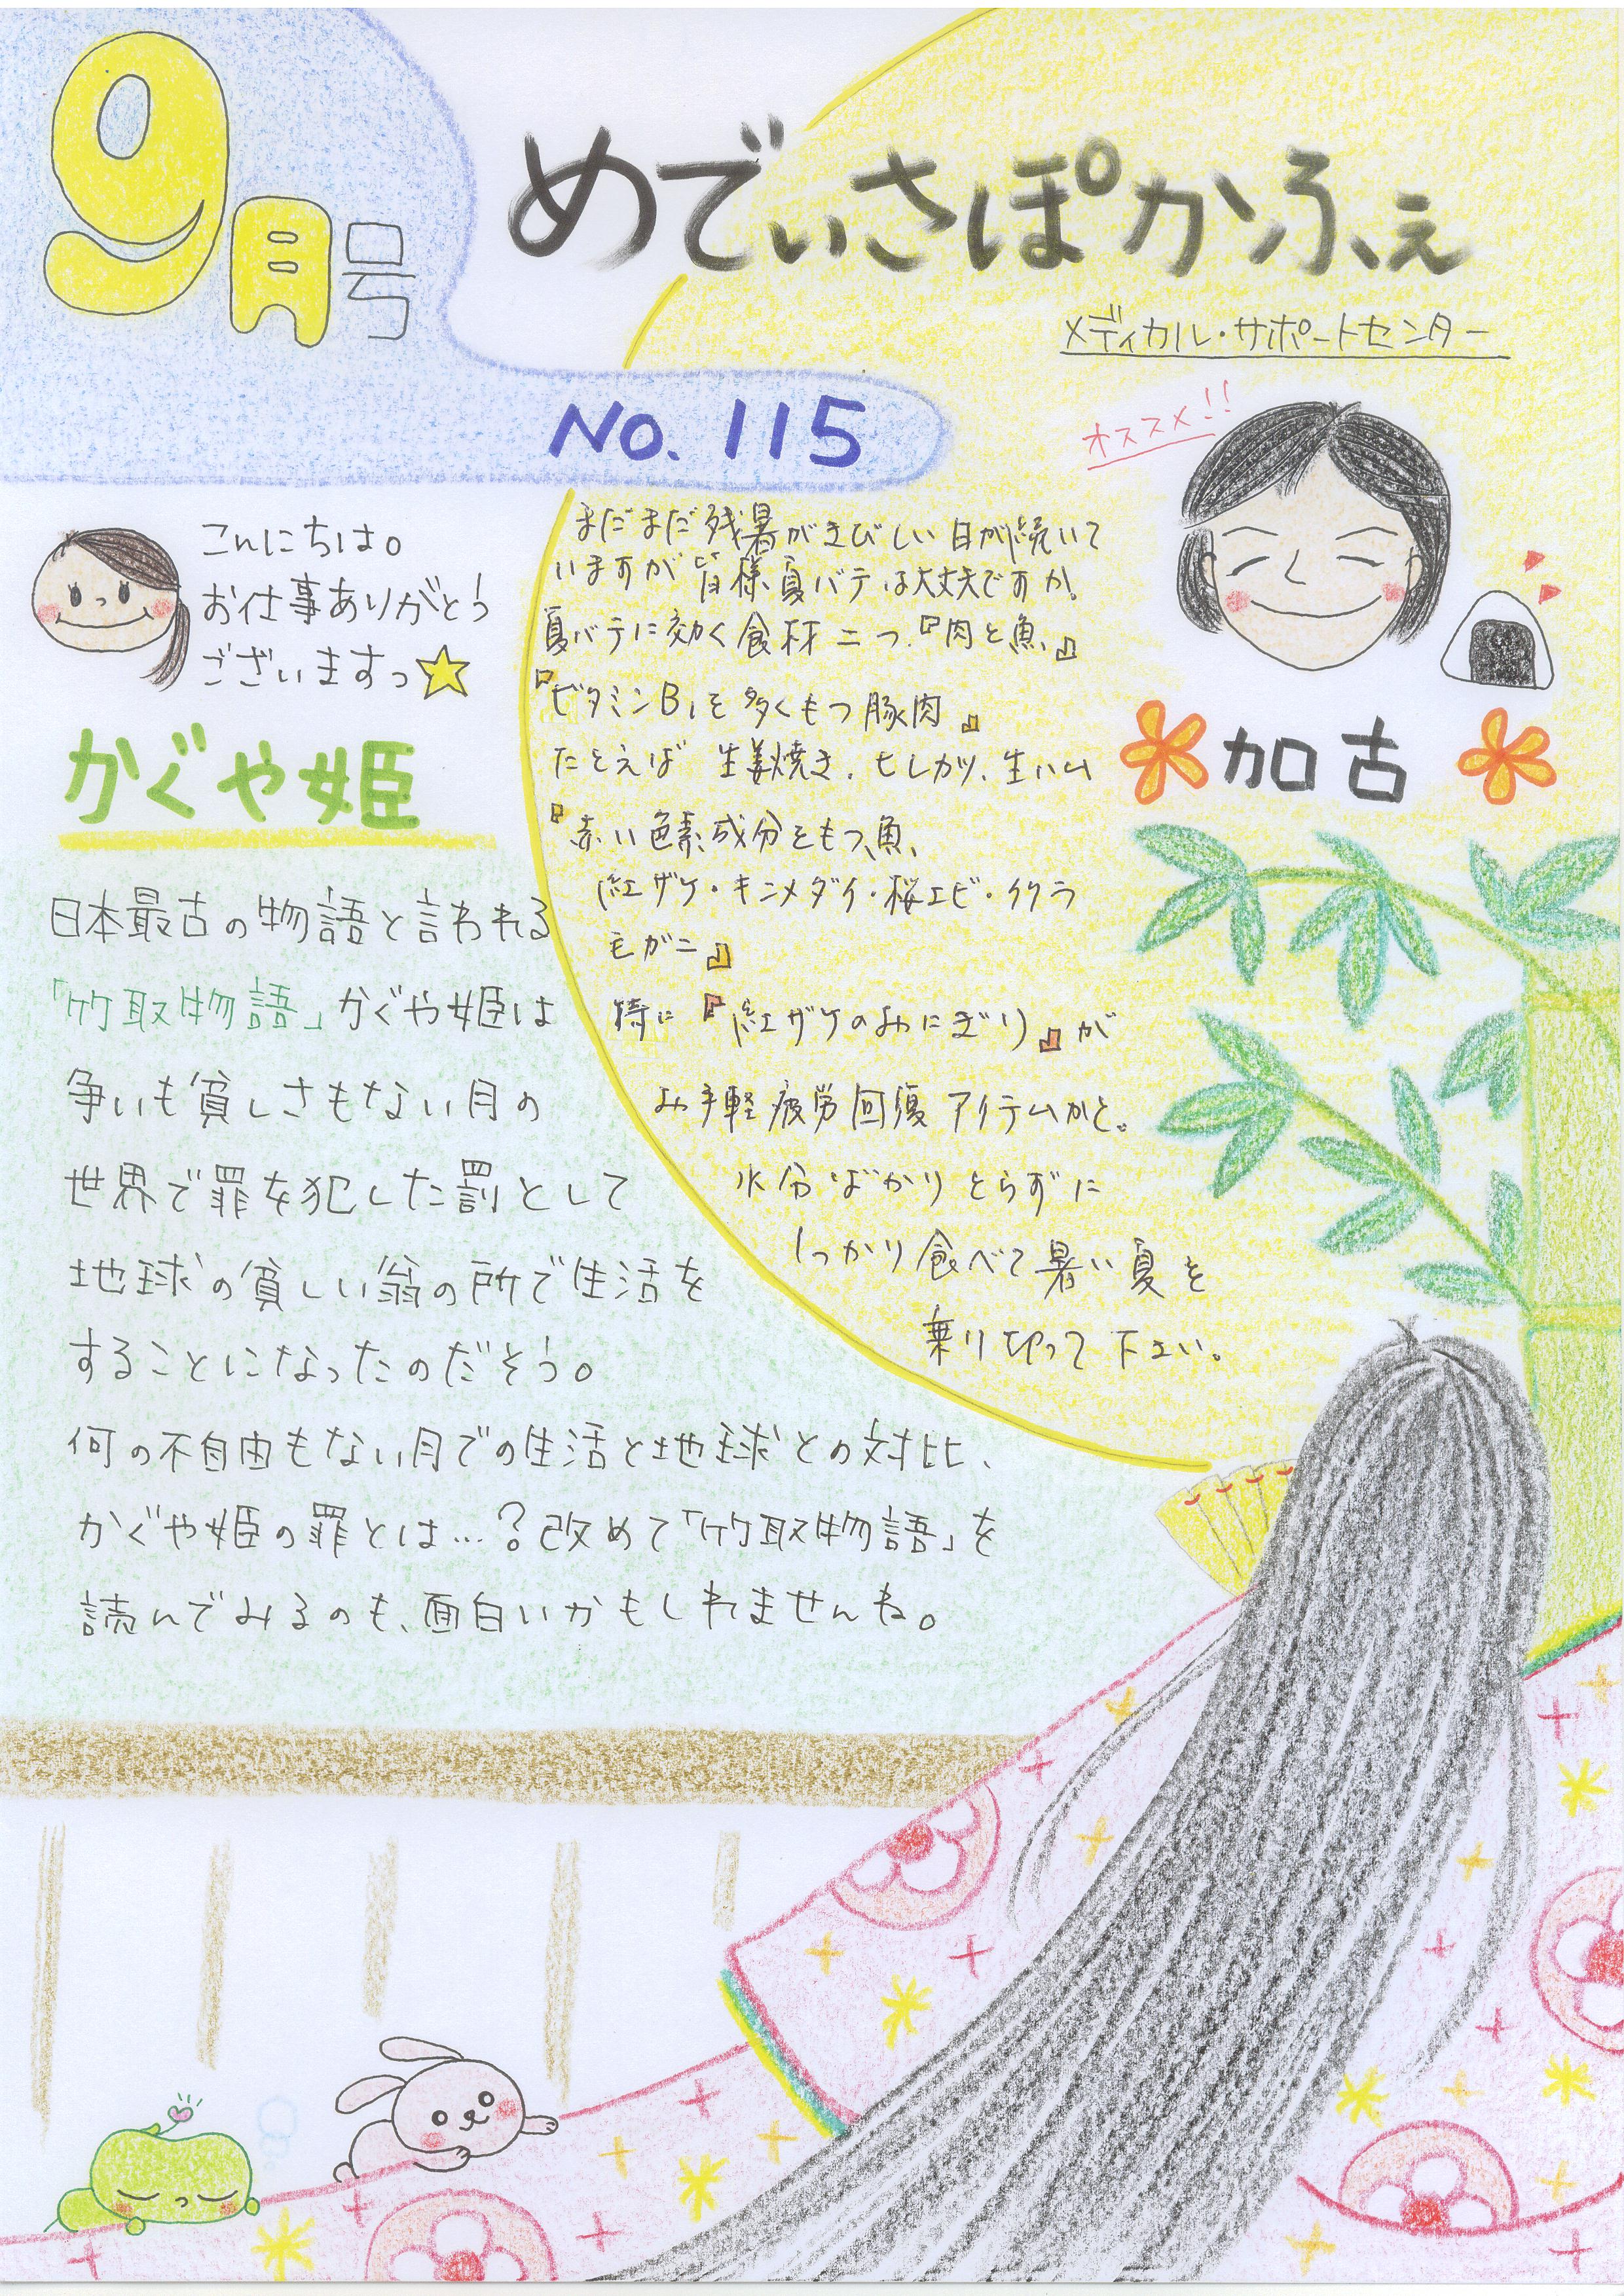 9月号
めでぃさぽかふぇ
メディカル・サポートセンター
No. 115
オススメ!!
こんにちは。
お仕事ありがとう
ございますっ
かぐや姫
日本最古の物語と言われる
「竹取物語」かぐや姫は
争いも貧しさもない月の
世界で罪を犯した罰として
地球の貧しい翁の所で生活を
することになったのだそう。
何の不自由もない月での生活と地球との対比、
かぐや姫の罪とは…?改めて「竹取物語」を
読んでみるのも、面白いかもしれませんね。
まだまだ残暑がきびしい日が続いて
いますが皆様夏バテは大丈夫ですか。
夏バテに効く食材二つ.『肉と魚』
『ビタミンB1を多くもつ豚肉』
たとえば 生姜焼き、ヒレカツ、生ハム
『赤い色素成分をもつ魚、
紅ザケ・キンメダイ・桜エビ・イクラ
毛ガニ』
特に『紅ザケのおにぎり』が
お手軽疲労回復アイテムかと。
水分ばかりとらずに
しっかり食べて暑い夏を
乗り切って下さい。
加古